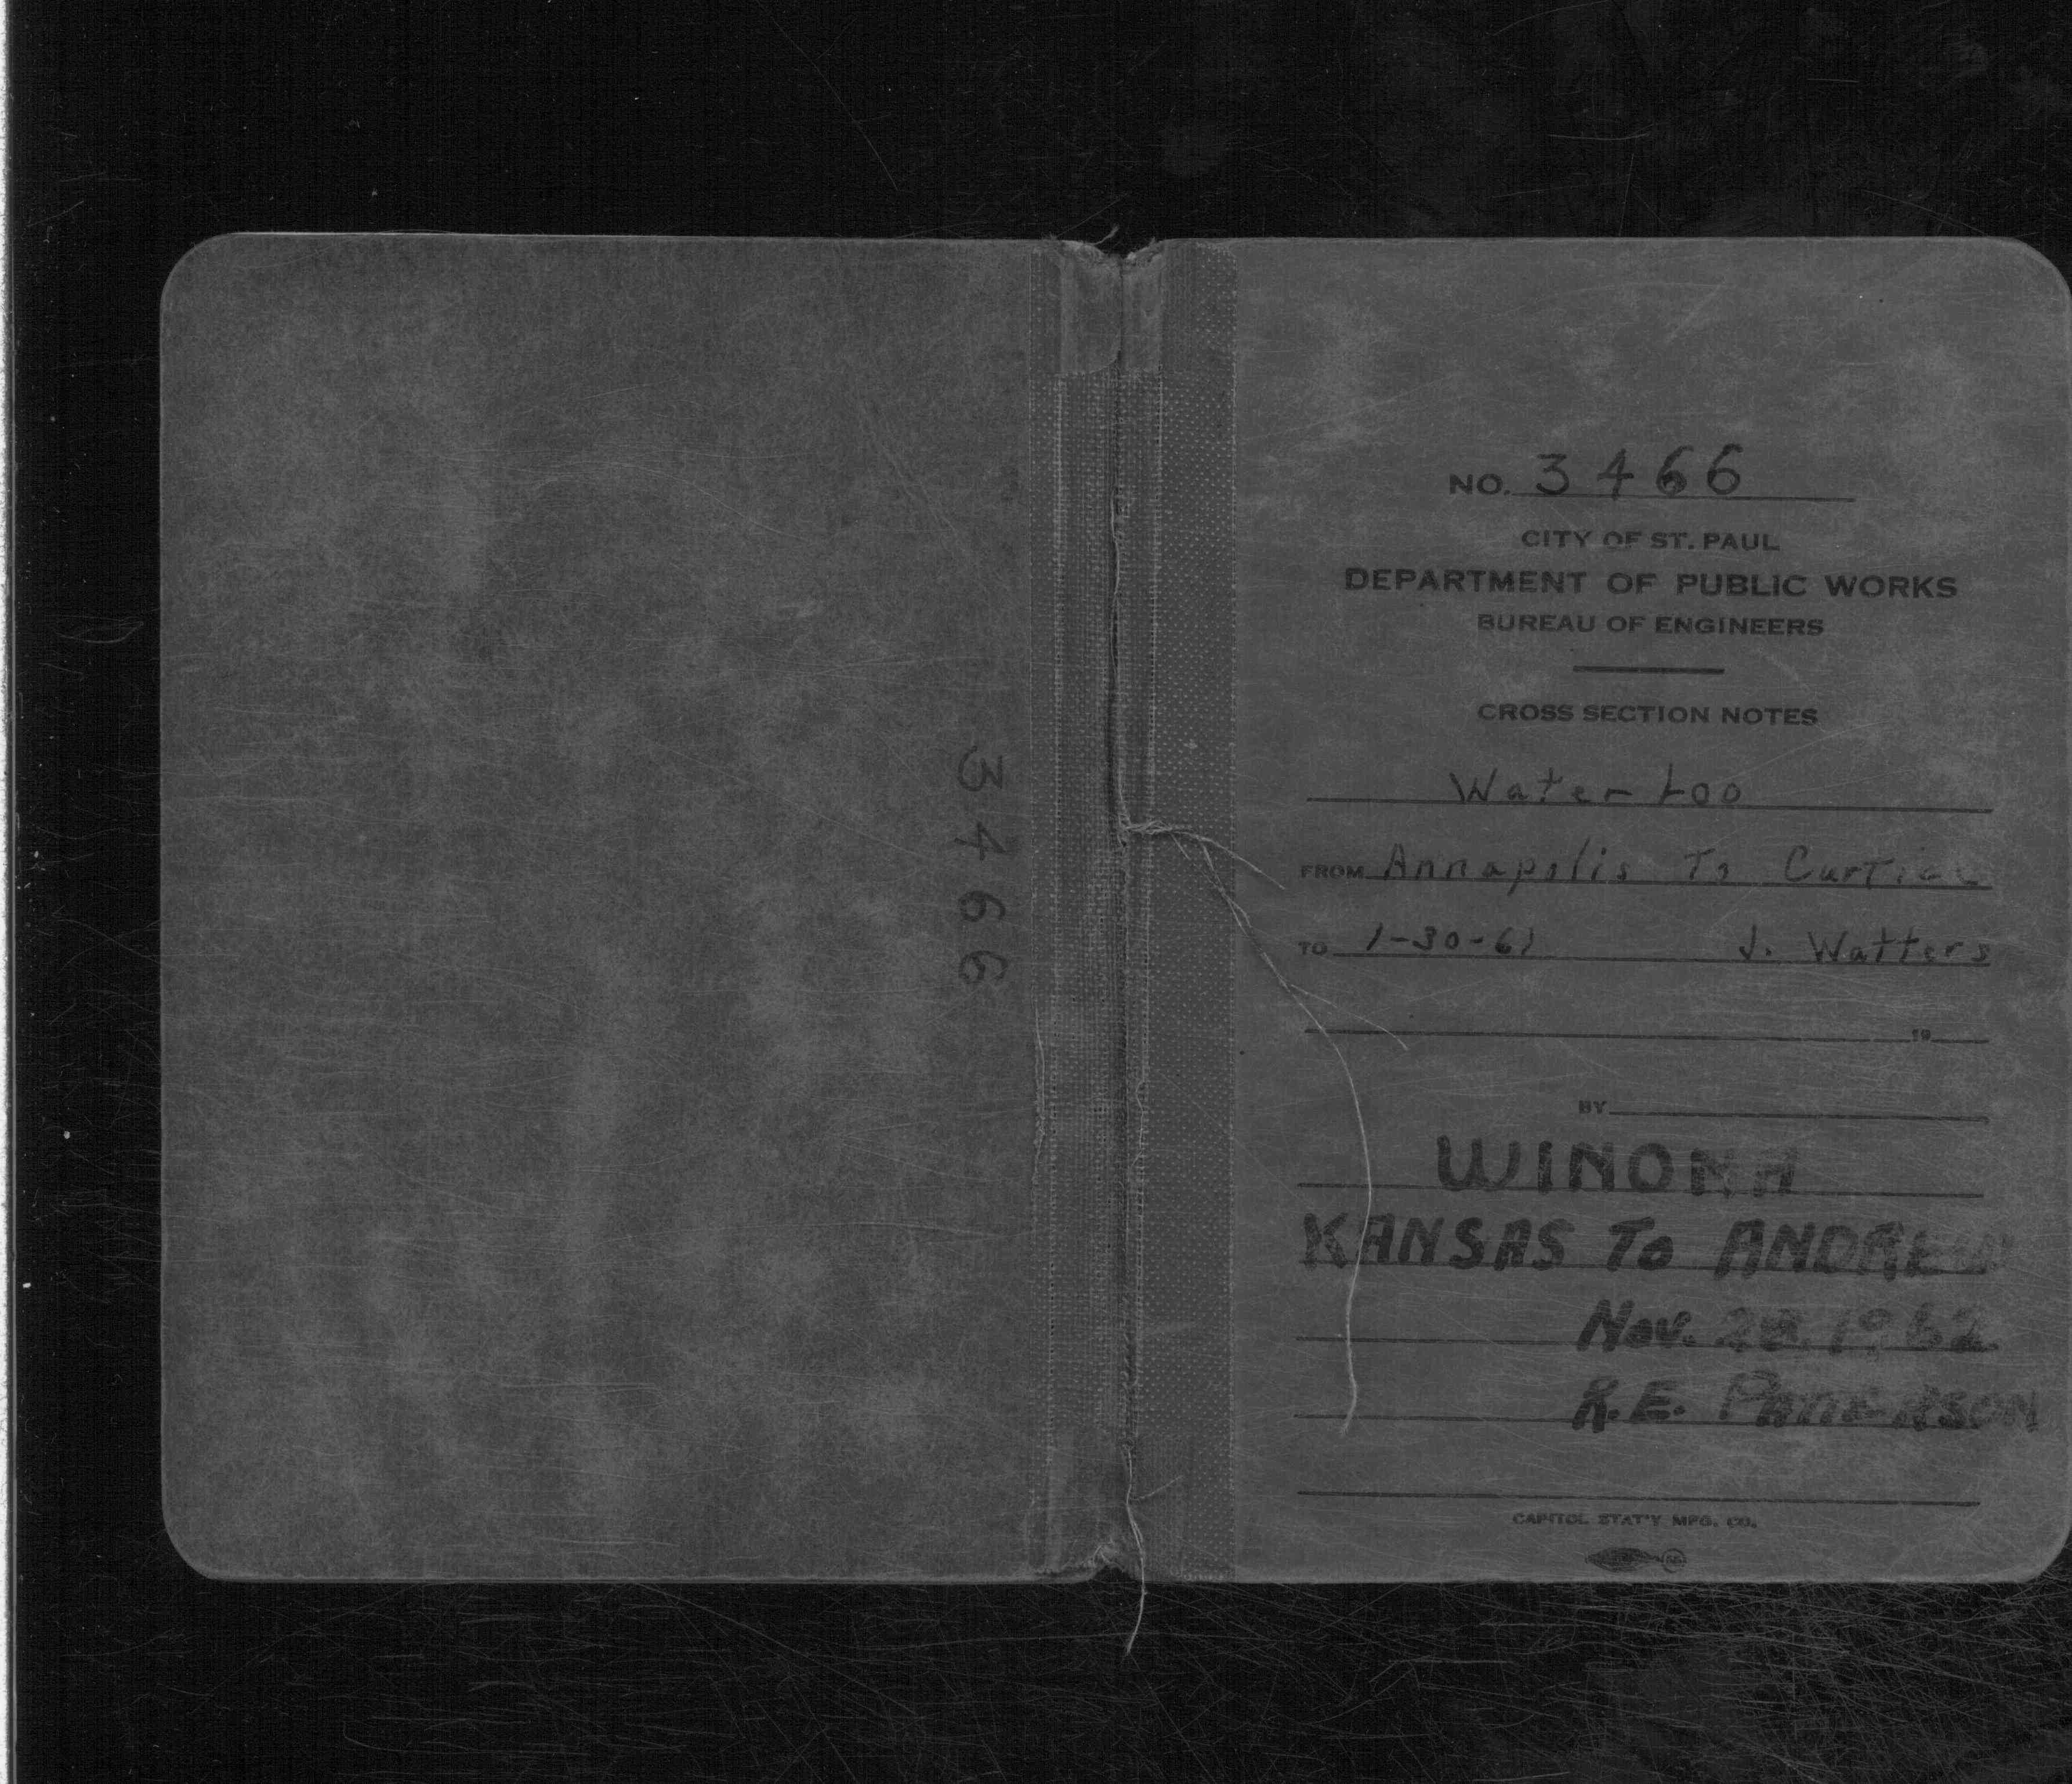 3466
NO. 3466
CITY OF ST. PAUL
DEPARTMENT OF PUBLIC WORKS
BUREAU OF ENGINEERS
CROSS SECTION NOTES
Waterloo
FROM Annapolis To Curtice
TO 1-30-61 J. Watters
19
BY
WINONA
KANSAS To ANDREW
Nov. 28, 1962
R.E. PATTERSON
CAPITOL STAT'Y MFG. CO.